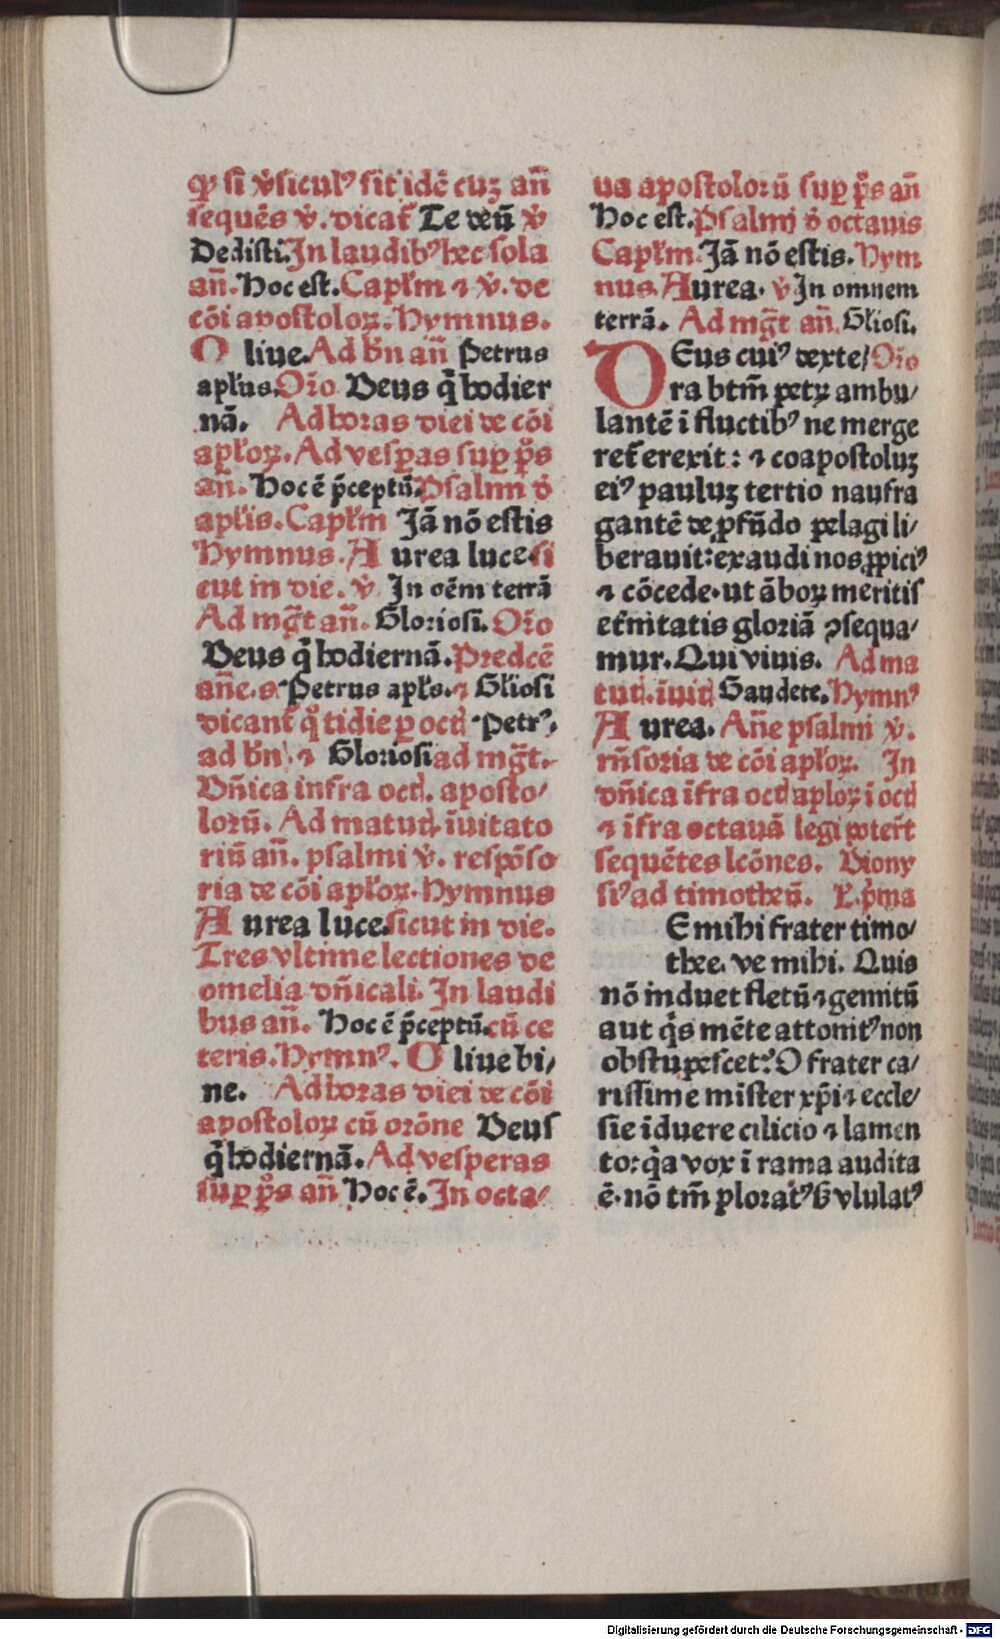 ꝙ si v̇sicul⁹ sit idē cuꝫ an̄
sequēs v̇. dicat᷑ Te deū v̇
Dedisti. In laudib⁹ hec sola
an̄. Hoc est. Capl’m ⁊ v̇. de
cōi apostoloꝝ. Hymnus.
O liue. Ad bn̄ an̄ Petrus
apl’us. Or̄o Deus q̄ hodier
nā. Ad horas diei de cōi
apl’oꝝ. Ad vesꝑas suꝑ ps̄
an̄. Hoc ē p̄ceptū. Psalmi ō
apl’is. Capl’m Jā nō estis
Hymnus. A urea luce. si
cut in die. v̇. In oēm terrā
Ad mg̅t an̄. Gloriosi. Or̄o
Deus q̄ hodiernā. Predcē
an̄e. s. Petrus apl’s. ⁊ Gl’iosi
dicant᷑ q̊tidie ꝑ octꝭ. Petr⁹.
ad bn̄. ⁊ Gloriosi ad mg̅t.
Dn̄ica infra octꝭ. aposto/
lorū. Ad matutꝭ. īuitato
riū an̄. psalmi v̇. respōso
ria de cōi apl’oꝝ. Hymnus
A urea luce. sicut in die.
Tres vltime lectiones de
omelia dn̄icali. In laudi
bus an̄. Hoc ē p̄ceptū. cū ce
teris. Hymn⁹. O liue bi/
ne. Ad horas diei de cōi
apostoloꝝ cū orōne Deus
q̄ hodiernā. Ad vesperas
suꝑ ps̄ an̄ Hoc ē. In octa/
ua apostolorū suꝑ ps̄ an̄
Hoc est. Psalmi ō octauis
Capl’m. Jā nō estis. Hym
nus. Aurea. v̇ In omnem
terrā. Ad mg̅t an̄. Gl’iosi.
DEus cui⁹ dexte/ Or̄o
ra btm̄ petꝝ ambu/
lantē ī fluctib⁹ ne merge
ret᷑ erexit: ⁊ coapostoluꝫ
ei⁹ pauluꝫ tertio naufra
gantē de ꝓfūdo pelagi li/
berauit: exaudi nos ꝓpici⁹
⁊ cōcede. ut āboꝝ meritis
et᷑nitatis gloriā ꝯsequa/
mur. Qui viuis. Ad ma
tutꝭ. īuitꝭ Gaudete. Hymn⁹
A urea. An̄e psalmi v̇.
rn̄soria de cōi apl’oꝝ. In
dn̄ica īfra octꝭ aploꝝ ī octꝭ
⁊ īfra octauā legi poter̄t
sequētes lcōnes. Diony
si⁹ ad timotheū. L. p̄ma
E mihi frater timo/
thee. ve mihi. Quis
nō induet fletū ⁊ gemitū
aut q̇s mēte attonit⁹ non
obstupescet? O frater ca/
rissime mister xp̄i ⁊ eccle/
sie īduere cilicio ⁊ lamen
tor: q̇a vox ī rama audita
ē. nō tm̄ plorat⁹ sꝫ vlulat⁹
Digitalisierung gefördert durch die Deutsche Forschungsgemeinschaft - DFG